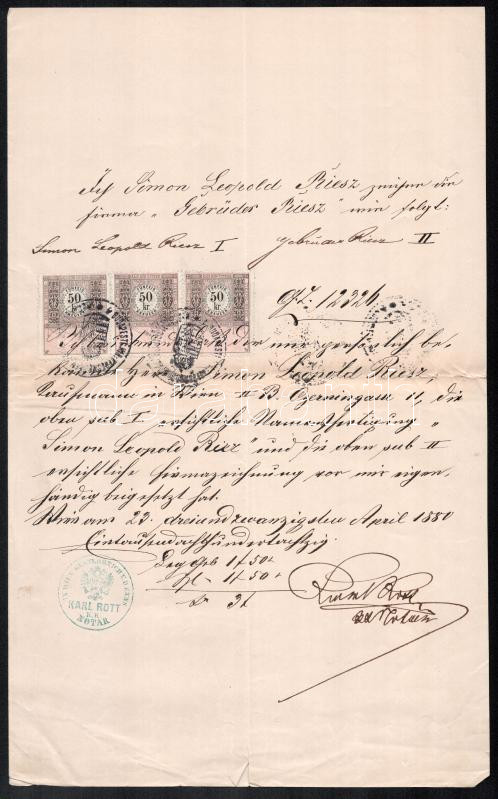 Ich Simon Leopold Riesz zeichne die
Firma „Gebrüder Riesz" wie folgt:
Simon Leopold Riesz I Gebrüder Riesz II
50 kr. 50 kr. 50 kr.
GZ: 12326
der mir persönlich be-
Herr Simon Leopold Riesz,
Kaufmann in Wien II B. Czerningasse 11, die
oben sub I ersichtliche Namensfertigung „
Simon Leopold Riesz" und die oben sub II
ersichtliche Firmazeichnung vor mir eigen-
händig beigesetzt hat.
Wien am 23. dreiundzwanzigsten April 1880
Eintausendachthundertachtzig.
Leg Geb 1f 50x
1f 50x
3f
KARL ROTT
K. K.
NOTAR
Karl Rott
kk Notar